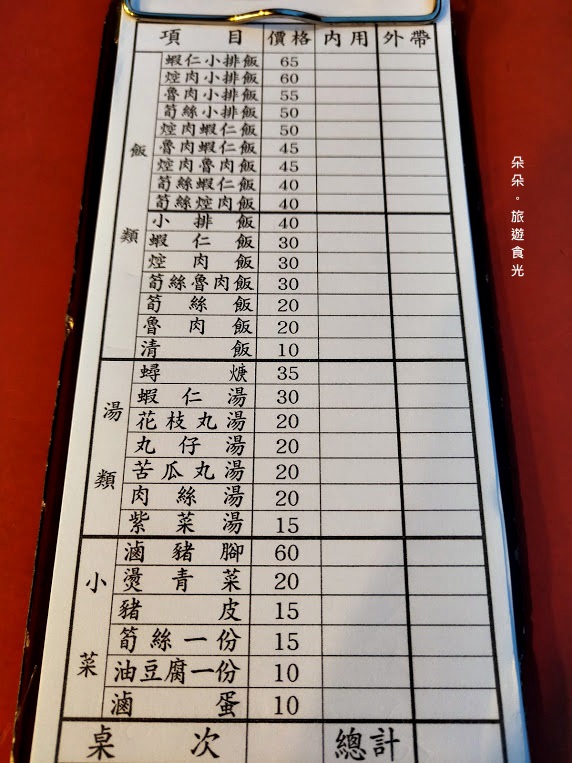 項目 價格 內用 外帶
飯類
蝦仁小排飯 65
焢肉小排飯 60
魯肉小排飯 55
筍絲小排飯 50
焢肉蝦仁飯 50
魯肉蝦仁飯 45
焢肉魯肉飯 45
筍絲蝦仁飯 40
筍絲焢肉飯 40
小排飯 40
蝦仁飯 30
焢肉飯 30
筍絲魯肉飯 30
筍絲飯 20
魯肉飯 20
清飯 10
湯類
蟳焿 35
蝦仁湯 30
花枝丸湯 20
丸仔湯 20
苦瓜丸湯 20
肉絲湯 20
紫菜湯 15
小菜
滷豬腳 60
燙青菜 20
豬皮 15
筍絲一份 15
油豆腐一份 10
滷蛋 10
桌次 總計
朵朵。旅遊食光